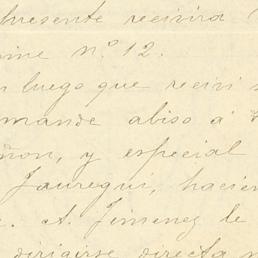 presente recivirá
nº 12.
luego que reciví
mande abiso á
ñon, y especial
Jauregui, hacien
A. Jimenez de
dirigirse directa